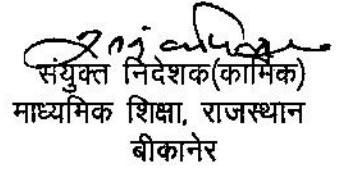 संयुक्त निदेशक(कार्मिक)
माध्यमिक शिक्षा, राजस्थान
बीकानेर